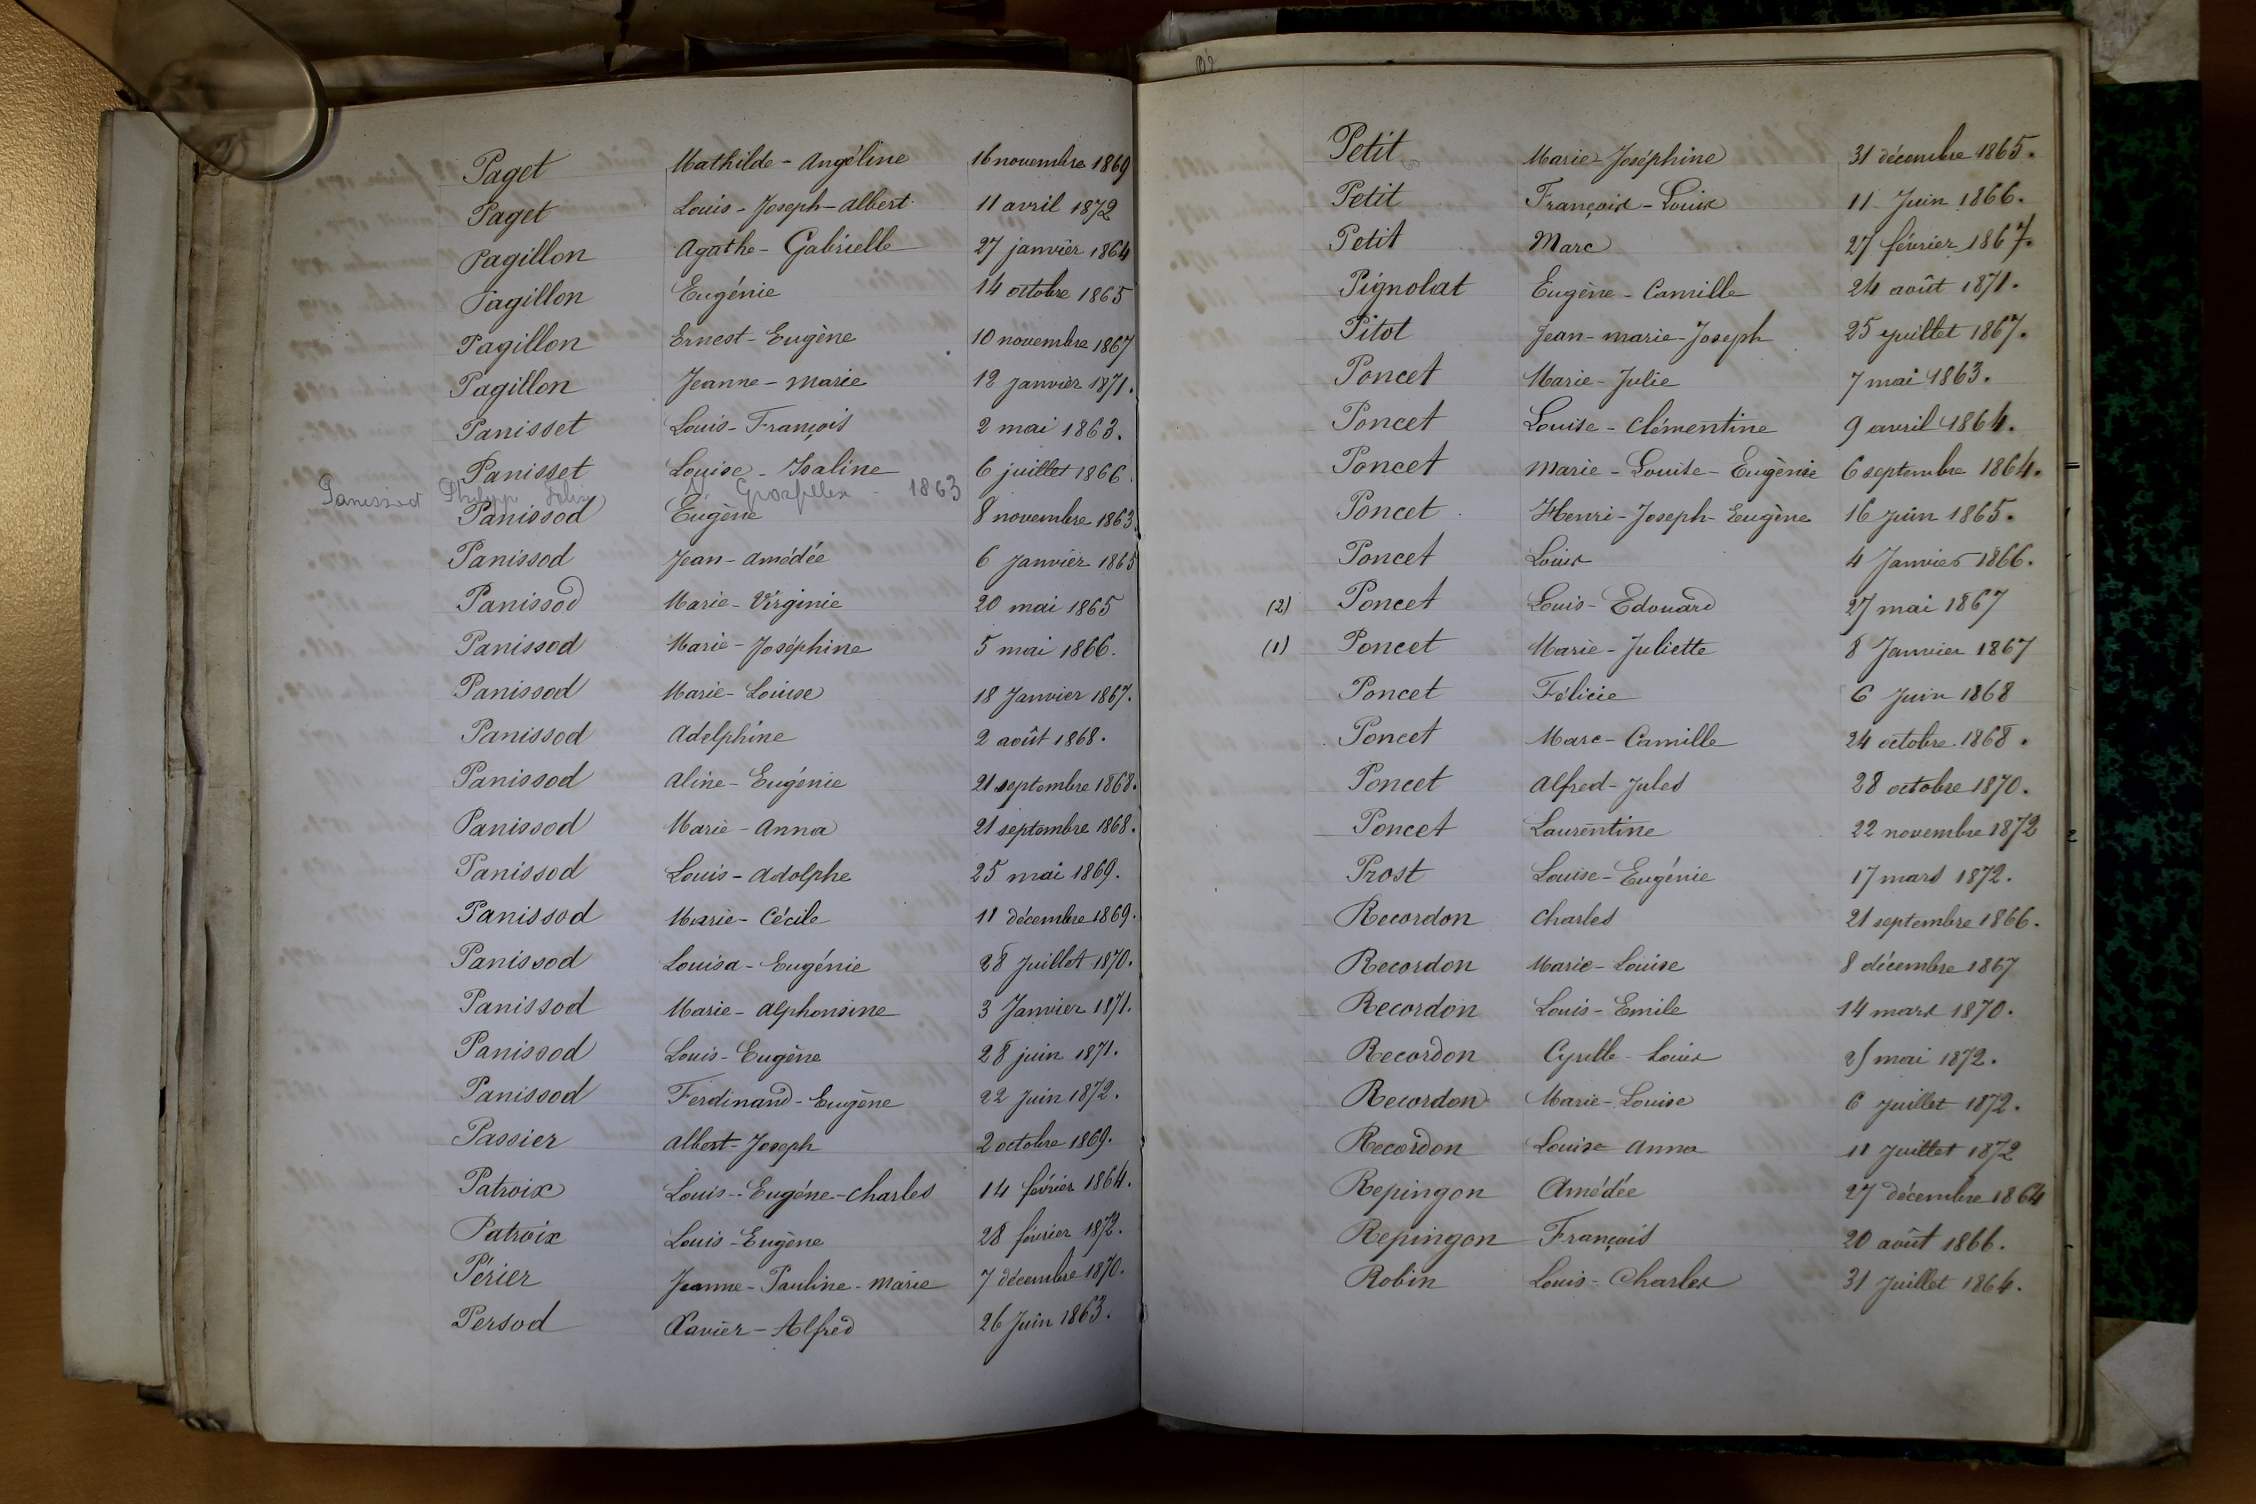 Paget Mathilde - Angéline 16 novembre 1869
Paget Louis - Joseph - Albert 11 avril 1872
Pagillon Agathe - Gabrielle 27 janvier 1864
Pagillon Eugénie 14 octobre 1865
Pagillon Ernest - Eugène 10 novembre 1867
Pagillon Jeanne - Marie 12 Janvier 1871.
Panisset Louis - François 2 mai 1863.
Panisset Louise - Isaline 6 juillet 1866
Panissod Philipp 1863
Panissod Eugène 8 novembre 1863
Panissod Jean - Amédée 6 Janvier 1865
Panissod Marie - Virginie 20 mai 1865
Panissod Marie - Joséphine 5 mai 1866.
Panissod Marie - Louise 18 Janvier 1867.
Panissod Adelphine 2 août 1868.
Panissod Aline - Eugénie 21 septembre 1868.
Panissod Marie - Anna 21 septembre 1868.
Panissod Louis - Adolphe 25 mai 1869.
Panissod Marie - Cécile 11 décembre 1869.
Panissod Louisa - Eugénie 28 Juillet 1870.
Panissod Marie - Alphonsine 3 Janvier 1871.
Panissod Louis - Eugène 28 juin 1871.
Panissod Ferdinand - Eugène 22 Juin 1872.
Passier Albert - Joseph 2 octobre 1869.
Patroix Louis - Eugéne - Charles 14 février 1864.
Patroix Louis - Eugène 28 février 1872.
Périer Jeanne - Pauline - Marie 7 décembre 1870.
Persod Xavier - Alfred 26 Juin 1863.
Petit Marie - Joséphine 31 décembre 1865.
Petit François - Louis 11 Juin 1866.
Petit Marc 27 février 1867.
Pignolat Eugène - Camille 24 août 1871.
Pitot Jean - Marie - Joseph 25 Juillet 1867.
Poncet Marie - Julie 7 mai 1863.
Poncet Louise - Clémentine 9 avril 1864.
Poncet Marie - Louise - Eugènie 6 septembre 1864.
Poncet Henri - Joseph - Eugène 16 Juin 1865.
Poncet Louis 4 Janvier 1866.
(2) Poncet Louis - Edouard 27 mai 1867
(1) Poncet Marie - Juliette 8 Janvier 1867
Poncet Félicie 6 Juin 1868
Poncet Marc - Camille 24 octobre 1868.
Poncet Alfred - Jules 28 octobre 1870.
Poncet Laurentine 22 novembre 1872
Prost Louise - Eugénie 17 mars 1872.
Recordon Charles 21 septembre 1866.
Recordon Marie - Louise 8 décembre 1867
Recordon Louis - Emile 14 mars 1870.
Recordon Cyrille - Louis mai 1872.
Recordon Marie - Louise 6 Juillet 1872.
Recordon Louise Anna 11 Juillet 1872
Repingon Amédée 27 décembre 1864
Repingon François 20 août 1866.
Robin Louis - Charles 31 Juillet 1864.